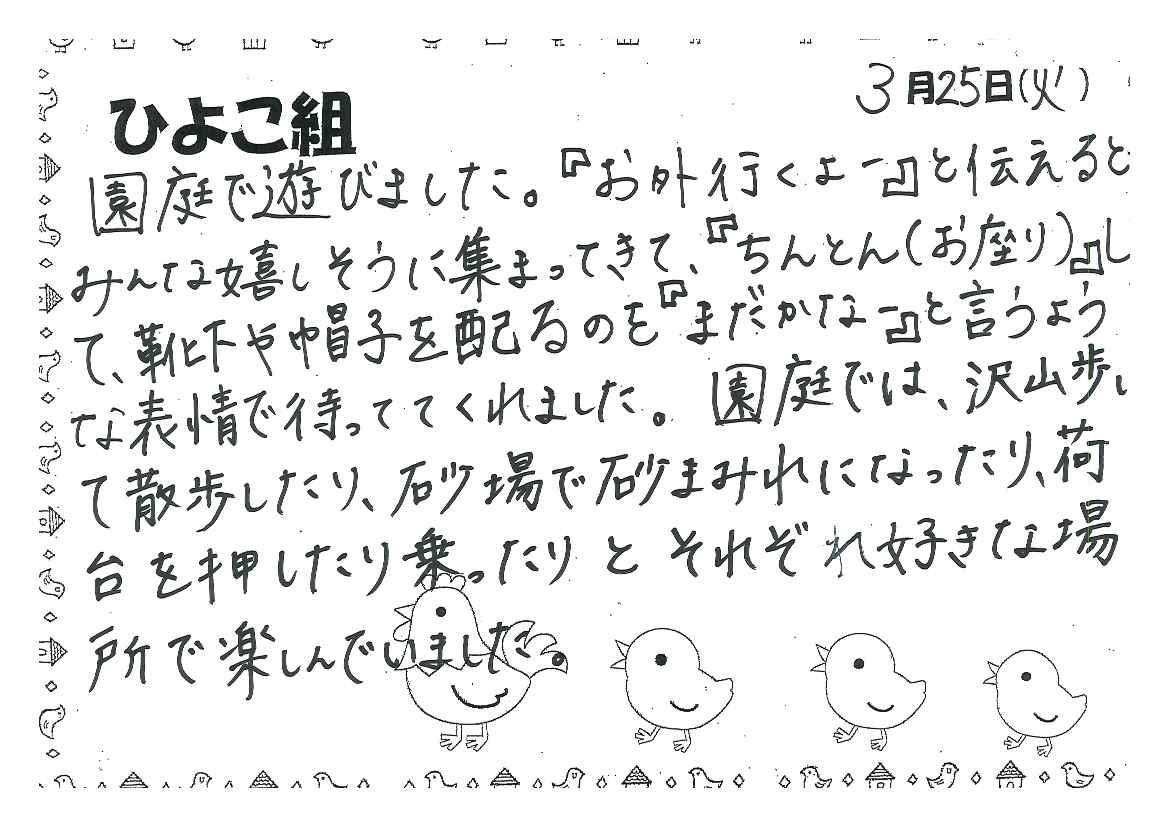 3月25日(火)
ひよこ組
園庭で遊びました。『お外行くよー』と伝えると
みんな嬉しそうに集まってきて、『ちんとん(お座り)』し
て、靴下や帽子を配るのを『まだかなー』と言うよう
な表情で待っててくれました。園庭では、沢山歩い
て散歩したり、砂場で砂まみれになったり、荷
台を押したり乗ったりとそれぞれ好きな場
所で楽しんでいました。